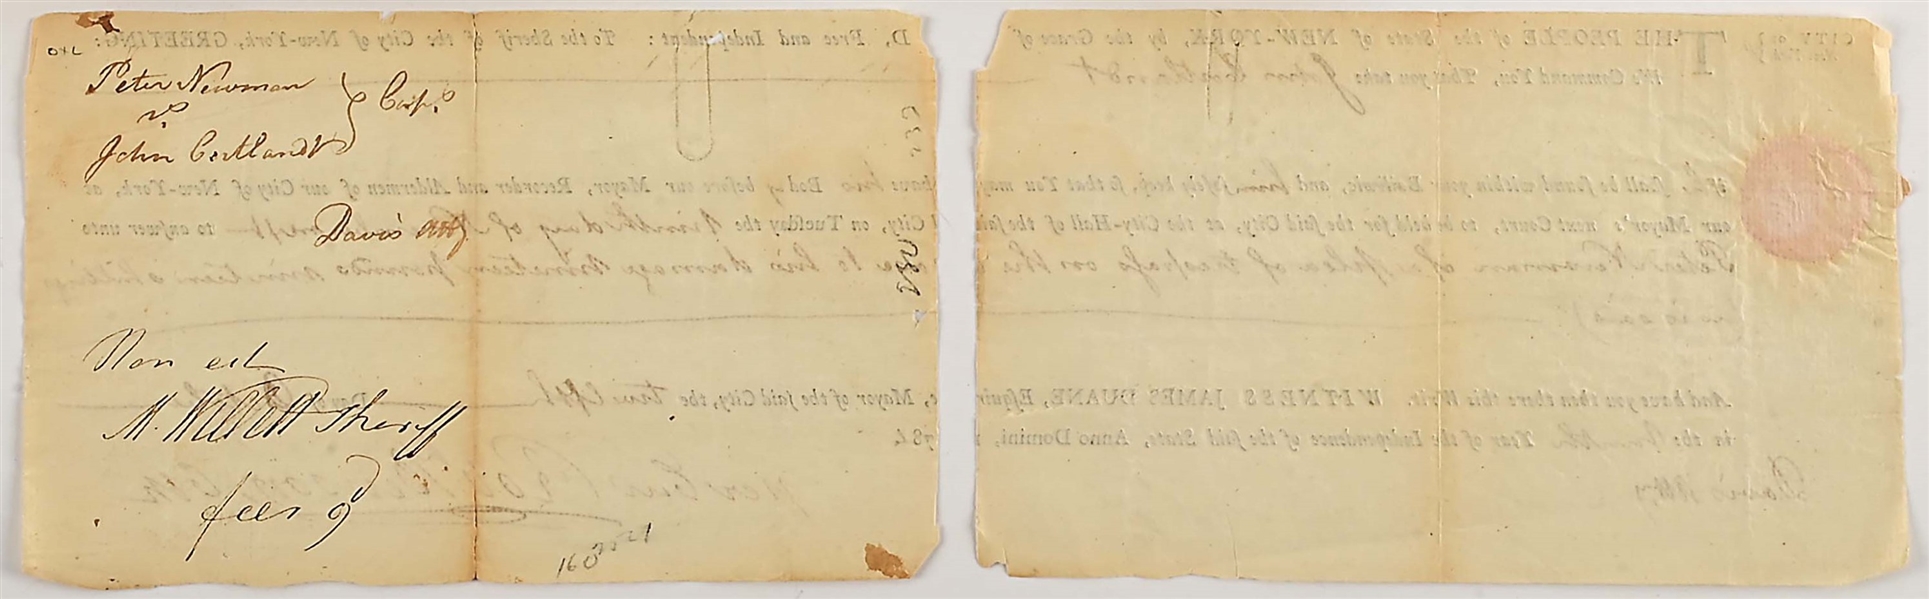 Peter Newman
vs
John Cortlandt
} Caps
Davis Atty
Non est
M. Willett Sheriff
fees 9d
CITY of New-York
THE PEOPLE of the State of NEW-YORK, by the Grace of
D, Free and Independent: To the Sherif of the City of New-York, GREETING:
We Command You, That you take John Cortlandt
If he shall be found within your Bailiwic, and him safely keep, so that You may have his Body before our Mayor, Recorder and Aldermen of our City of New-York, at
our Mayor's next Court, to be held for the said City, at the City-Hall of the said City, on Tuesday the Ninth day of to answer unto
Peter Newman of a plea of trespass on the to his damage Nineteen pounds nineteen shillings
And have you then there this Writ. WITNESS JAMES DUANE, Esquire, Mayor of the said City, the twelfth Day of
in the Ninth Year of the Independence of the said State, Anno Domini, 1784
Davis Atty